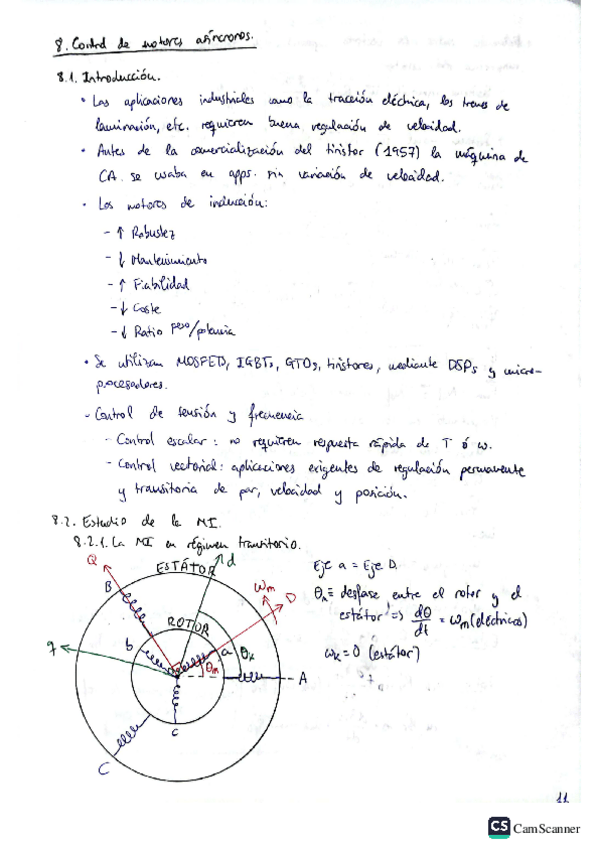 8. Control de motores asíncronos.
8.1. Introducción.
• Las aplicaciones industriales como la tracción eléctrica, los trenes de
laminación, etc. requieren buena regulación de velocidad.
• Antes de la comercialización del tiristor (1957) la máquina de
CA. se usaba en apps. sin variación de velocidad.
• Los motores de inducción:
- ↑ Robustez
- ↓ Mantenimiento
- ↑ Fiabilidad
- ↓ Coste
- ↓ Ratio peso/potencia
• Se utilizan MOSFETs, IGBTs, GTOs, tiristores, mediante DSPs y micro-
procesadores.
- Control de tensión y frecuencia
- Control escalar: no requieren respuesta rápida de T ó ω.
- Control vectorial: aplicaciones exigentes de regulación permanente
y transitoria de par, velocidad y posición.
8.2. Estudio de la MI.
8.2.1. La MI en régimen transitorio.
Q
ESTÁTOR
d
Eje a = Eje D
B
ωm
D
θ ≡ desfase entre el rotor y el
estátor => dθ/dt = ωm (eléctricos)
ROTOR
q
b
a
θk
θm
ωk = 0 (estátor)
A
c
C
11
CS CamScanner